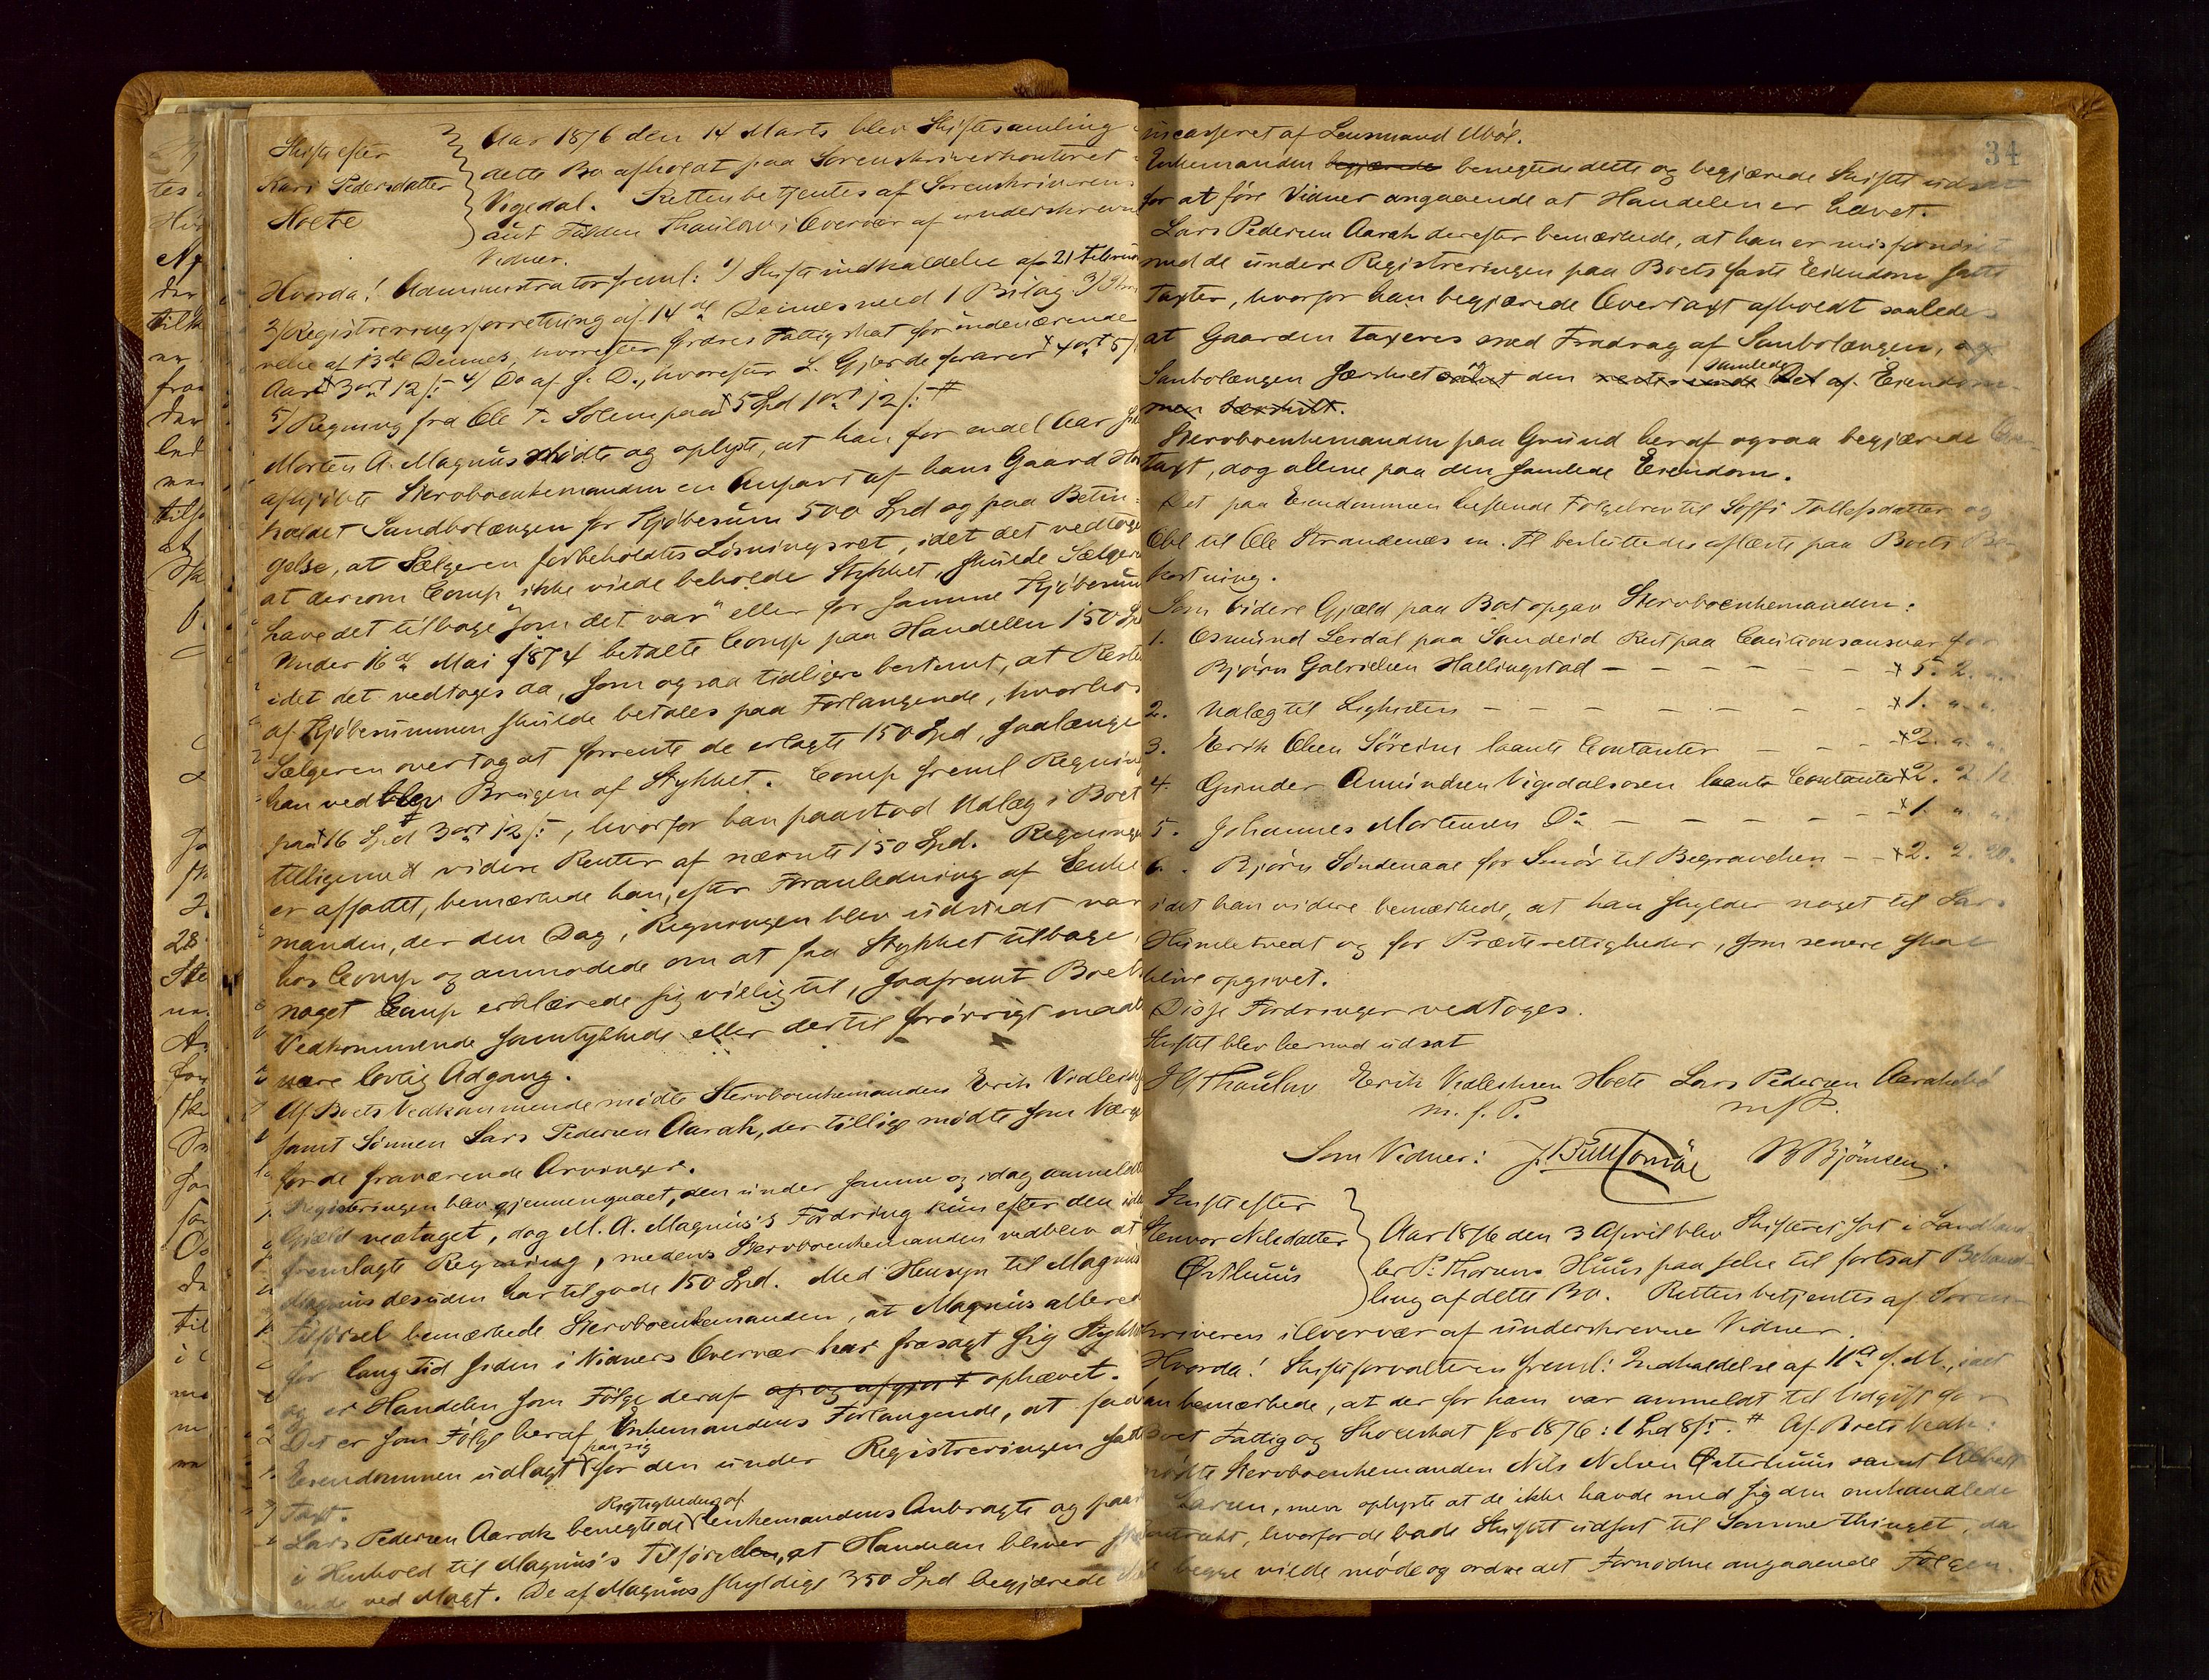 Skifte efter
Kari Pedersdatter
Hoete
Aar 1876 den 14 Marts blev Skiftesamling i
dette Bo afholdt paa Sorenskriverkontoret i
Vigedal. Retten betjentes af Sorenskriverens
aut Fuldm Thaulow i Overvær af underskrevne
Vidner.
Hvorda! Administrator freml: 1) Skifteindkaldelse af 21 Februar
2) Registreringsforretning af 14de Dennes med 1 Bilag 3)
velse af 13de Dennes, hvorefter fordres Fattigskat for indeværende
Aar 3 ort 12 s: 4) Do af s. D., hvorefter L. Gjerde fordrer 4 ort 5 s
5) Regning fra Ole T. Solem paa 5 Spd 1 ort 12 s: #
Morten A. Magnus mødte og oplyste, at han for endel Aar siden
afkjøbte Stervboenkemanden en Anpart af hans Gaard
kaldet Sandbolængen for Kjøbesum 500 Spd og paa Betin-
gelse, at Sælgeren forbeholdtes Løsningsret, idet det vedtoges
at dersom Comp ikke vilde beholde Stykket, skulde Sælgeren
have det tilbage "som det var" eller for samme Kjøbesum
Under 16de Mai 1874 betalte Comp paa Handelen 150 Spd
idet det vedtoges da, som ogsaa tidligere bestemt, at Resten
af Kjøbesummen skulde betales paa Forlangende, hvorhos
Sælgeren overtog at forrente de erlagte 150 Spd, saalænge
han vedblev Brugen af Stykket. Comp freml Regning
paa 16 Spd 3 ort 12 s:, hvorfor han paastod Udlæg i Boet
tilligemed videre Renter af nævnte 150 Spd. Regningen
er affattet, bemærkede han, efter Foranledning af Enke-
manden, der den Dag, Regningen blev udstedt var
hos Comp og anmodede om at faa Stykket tilbage,
noget Comp erklærede sig villig til, saafremt Boets
Vedkommende samtykkede eller dertil forøvrigt maatte
være lovlig Adgang.
Af Boets Vedkommende mødte Stervboenkemanden Erik Vidleiksen
samt Sønnen Lars Pedersen Aarak, der tillige mødte som Værge
for de fraværende Arvinger.
Registeringen blev gjennemgaaet, den under samme og idag anmeldte
Gjæld vedtaget, dog M. A. Magnus's Fordring kun efter den idag
fremlagte Regning, medens Stervboenkemanden vedblev at
Magnus desuden har tilgode 150 Spd. Med Hensyn til Magnus
Tilførsel bemærkede Stervboenkemanden, at Magnus allerede
for lang Tid siden i Vidners Overvær har frasagt sig Stykket
og er Handelen som Følge deraf ap og afgjort ophævet.
Det er som Følge heraf Enkemandens Forlangende, at faa
Eiendommen udlagt paa sig for den under Registreringen satte
Taxt.
Lars Pedersen Aarak benegtede Rigtigheden af Enkemandens Anbragte og paastod
i Henhold til Magnus's Tilførselen, at Handelen bliver
ende ved Magt. De af Magnus skyldige 350 Spd begjærede
34
incasseret af Lensmand Abøl.
Enkemanden begjærede benegtede dette og begjærede Skiftet udsat
for at føre Vidner angaaende at Handelen er hævet.
Lars Pedersen Aarak derefter bemærkede, at han er misfornøiet
med de under Registreringen paa Boets faste Eiendom satte
Taxter, hvorfor han begjærede Overtaxt afholdt saaledes
at Gaarden taxeres med Fradrag af Sanbolængen, og
Sanbolængen særskilt samt og den resterende samlede Del af Eiendom-
men særskilt.
Stervboenkemanden paa Grund heraf ogsaa begjærede Over-
taxt, dog alene paa den samlede Eiendom.
Det paa Eiendommen heftende Følgebrev til Soffi Tollefsdatter og
Obl til Ole Strandenæs m. Fl besluttedes aflæste paa Boets Be-
kostning.
Som videre Gjæld paa Boet opgav Stervboenkemanden:
1. Osmund Lerdal paa Sandeid Rest paa Cautionsansvar for
Bjørn Gabrielsen Hallingstad - - - - - - x 5. 2. "
2. Udlæg til Ligkisten - - - - - - - x 1. " "
3. Erik Olsen Søreim laante Contanter - - - x 2. " "
4. Gunder Amundsen Vigedalsosen laante Contanter x 2. 2. 12
5. Johannes Mortensen Do - - - - - x 1. " "
6. Bjørn Søndenaae for Smør til Begravelsen - - x 2. 2. 20.
idet han videre bemærkede, at han skylder noget til Lars
Himletvedt og for Præsterettigheder, som senere skal
blive opgivet.
Disse Fordringer vedtoges.
Skiftet blev hermed udsat
Thaulow Erik Vidleiksen Hoete Lars Pedersen Aarak
m. f. P. m f P.
Som Vidner: B Bjørnsen.
Skifte efter
Stenvor Nilsdatter
Østhuus
Aar 1876 den 3 April blev Skifteret sat i Landhand-
ler P. Thorsens Huus paa Ølen til fortsat Behand-
ling af dette Bo. Retten betjentes af Soren-
skriveren i Overvær af underskrevne Vidner.
Hvorda! Skifteforvalteren freml: Indkaldelse af 11te f. M., idet
han bemærkede, at der for ham var anmeldt til Udgift for
Boet Fattig og Skoleskat for 1876: 1 Spd 8 s. # Af Boets Vedk:
mødte Stervboenkemanden Nils Nilsen Østerhuus samt
Larsen, men oplyste at de ikke havde med sig den omhandlede
Contrakt, hvorfor de bade Skiftet udsat til Sommerthinget, da
de begge vilde møde og ordne det Fornødne angaaende Følgen.